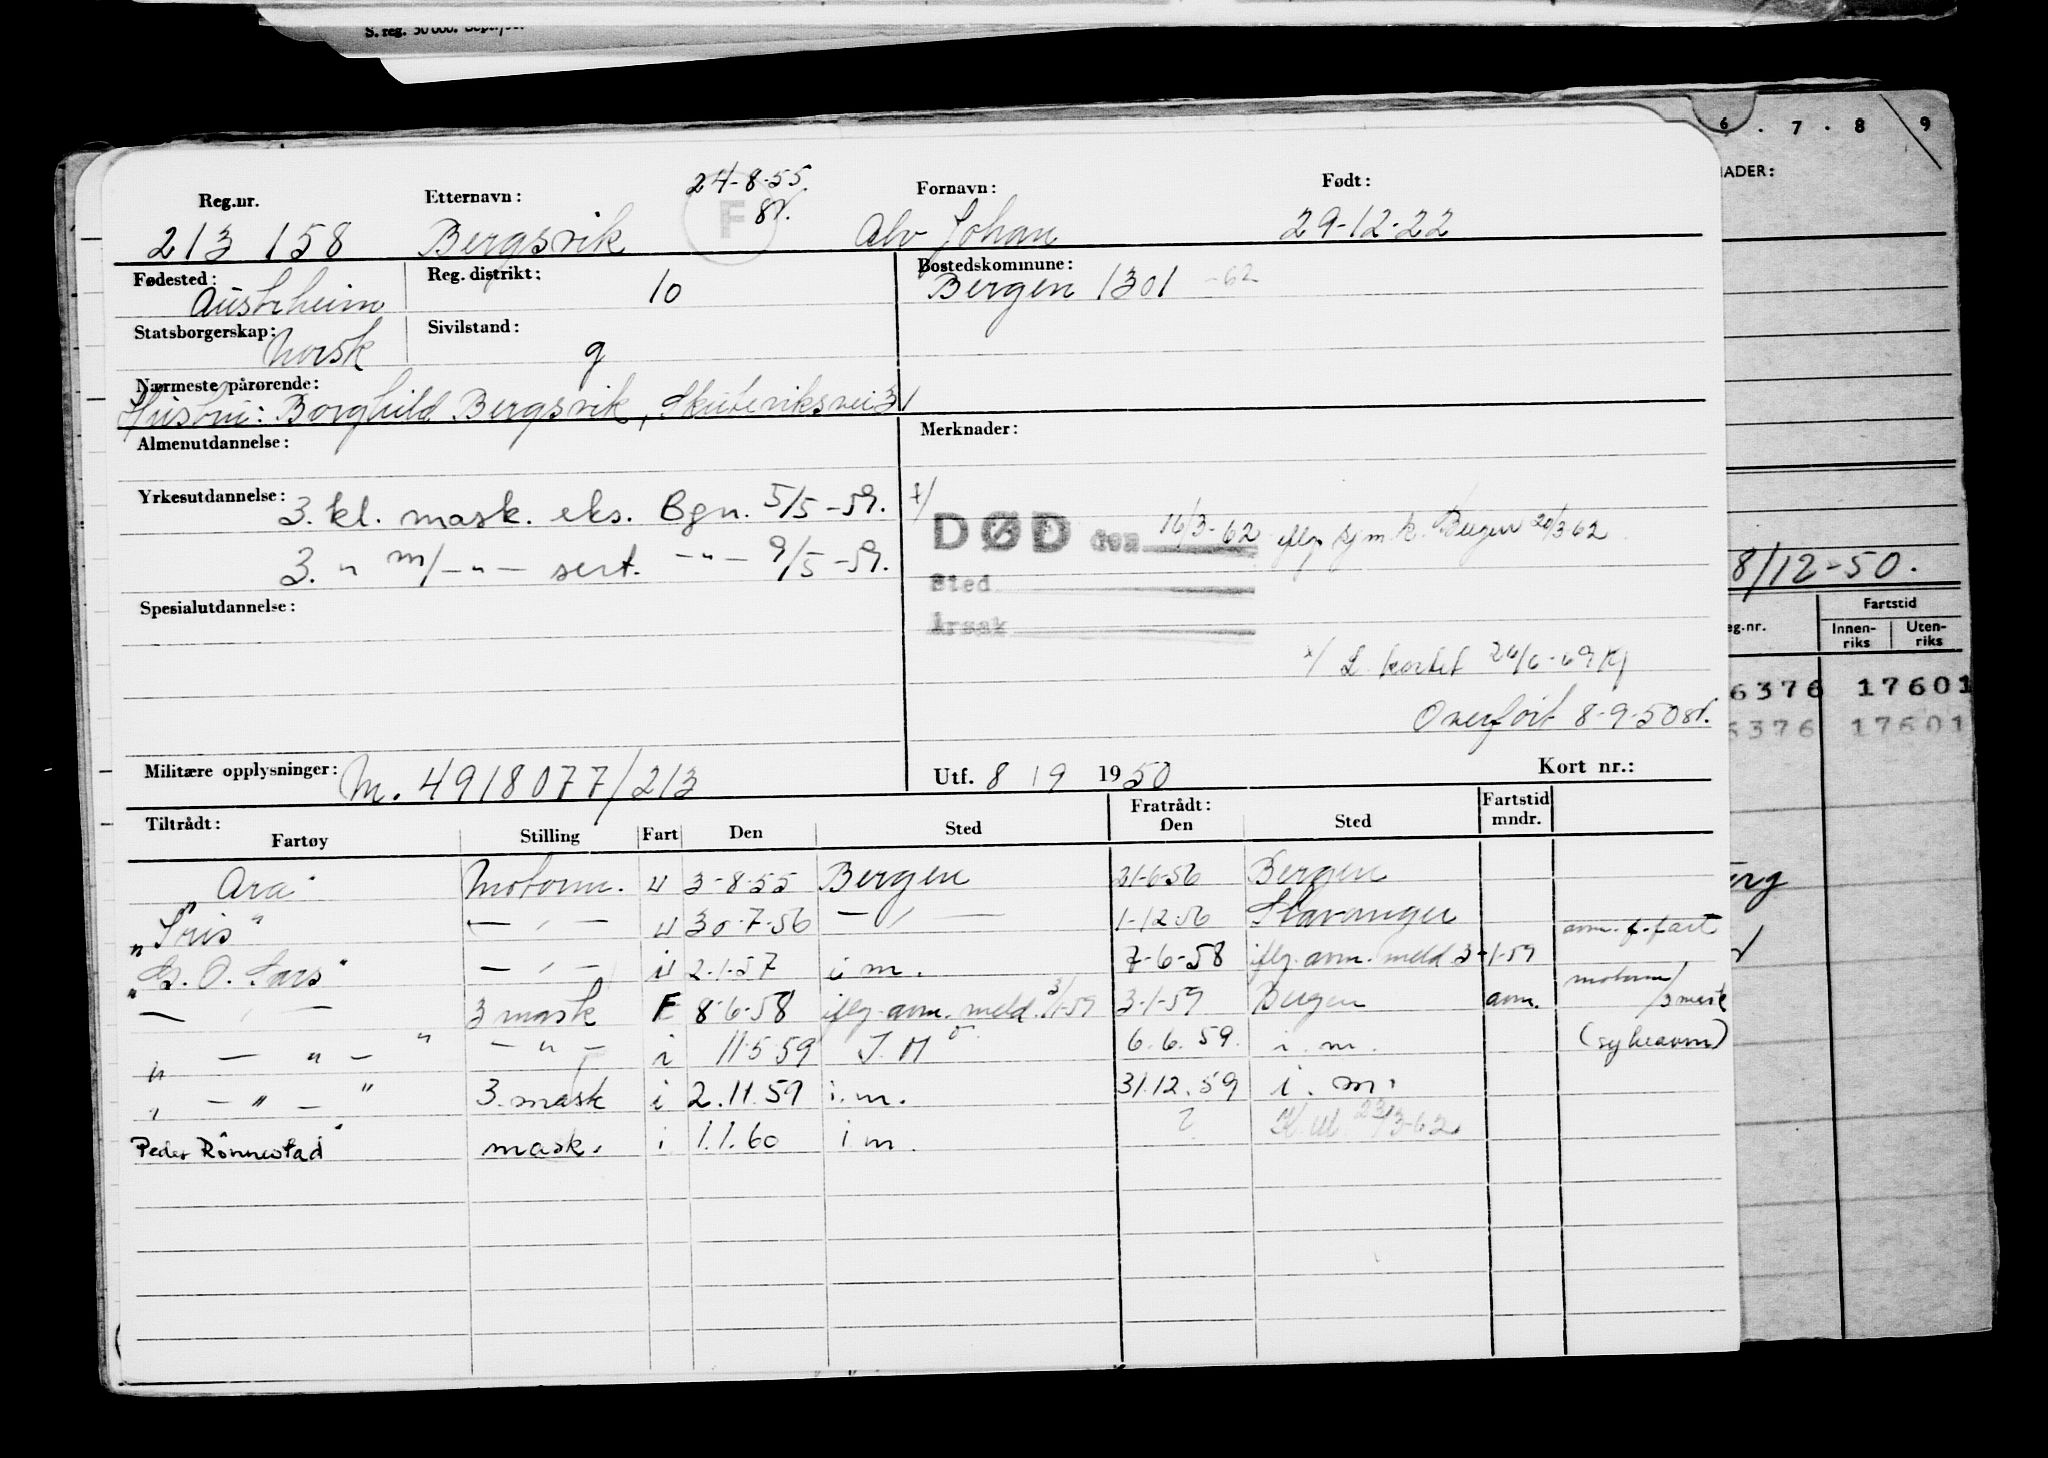 S. reg. 50 000.
6 . 7 . 8 9
NADER:
Reg.nr. Etternavn: 24-8-55. Fornavn: Født:
F
213 158 Bergsvik Alv Johan 29-12-22
Fødested: Reg. distrikt: Bostedskommune:
Austrheim 10 Bergen 1301 -62
Statsborgerskap: Sivilstand:
Norsk g
Nærmeste pårørende:
Hustru: Borghild Bergsvik, Skuteviksvei 31
Almenutdannelse: Merknader:
Yrkesutdannelse: 3. kl. mask. eks. Bgn. 5/5-59.
DØD den 16/3-62 iflg sjm.k. Bergen 20/3 62
3. " m/-"- sert. -"- 9/5-59.
Sted
8/12-50.
Spesialutdannelse:
Årsak
Fartstid
eg.nr. Innen-riks Uten-riks
x/ L. kortet 26/6-69 Kj
6376 17601
Overført 8-9-50
6376 17601
Militære opplysninger: M. 4918077/213 Utf. 8 / 9 1950 Kort nr.:
Tiltrådt: Fratrådt: Fartstid
Fartøy Stilling Fart Den Sted Den Sted mndr.
"Ara" Motorm. u 3-8-55 Bergen 21-6-56 Bergen
"Iris" - " - u 30-7-56 - " - 1-12-56 Stavanger avm. f. fart
"G. O. Sars" - " - u 2-1-57 i m. 7-6-58 iflg. avm. meld 3-1-59
- " - 3 mask F 8-6-58 iflg. avm. meld. 3/1-59 3-1-59 Bergen avm. motorm/3 mask
" - " - " - " - i 11.5.59 I. M 6.6.59. i. m. (sykeavm)
" - " - " 3. mask i 2.11.59 i. m. 31.12.59 i. m.
Peder Rönnestad" mask. i 1.1.60 i m. ? 23/3-62